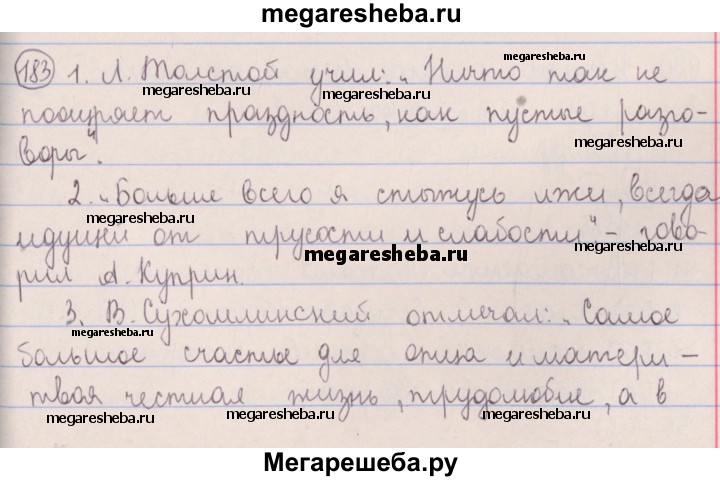 megaresheba.ru
183 1. Л. Толстой учил: „Ничто так не
megaresheba.ru
megaresheba.ru
megaresheba.ru
поощряет праздность, как пустые разго-
megaresheba.ru
воры".
2. „Больше всего я стыжусь лжи, всегда
megaresheba.ru
идущей от трусости и слабости", – гово-
megaresheba.ru
megaresheba.ru
рил А. Куприн.
3. В. Сухомлинский отмечал: „Самое
megaresheba.ru
megaresheba.ru
большое счастье для отца и матери –
твая честная жизнь, трудолюбие, а в
megaresheba.ru
megaresheba.ru
megaresheba.ru
Мегарешеба.ру